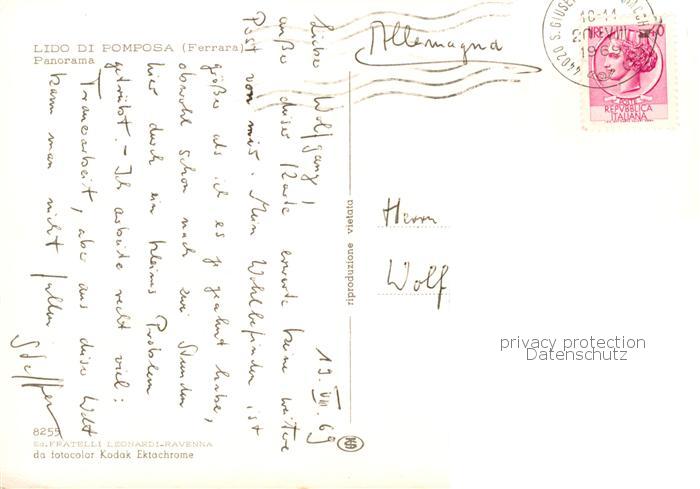 LIDO DI POMPOSA (Ferrara)
Panorama
19. VIII. 69
Lieber Wolfgang!
außer dieser Karte erwarte keine weitere
Post von mir. Mein Wohlbefinden ist
größer als ich es je geahnt habe,
obwohl schon nach zwei Stunden
hier durch ein kleines Problem
getrübt. – Ich arbeite recht viel:
Tranearbeit, aber aus dieser Welt
kann man nicht fallen
Steffen
8255
Ed. FRATELLI LEONARDI-RAVENNA
da fotocolor Kodak Ektachrome
riproduzione vietata
Allemagna
44020 S.GIUSEPPE
18-11
20 VIII
1969
POSTE
REPUBBLICA
ITALIANA
Herrn
Wolf
privacy protection
Datenschutz